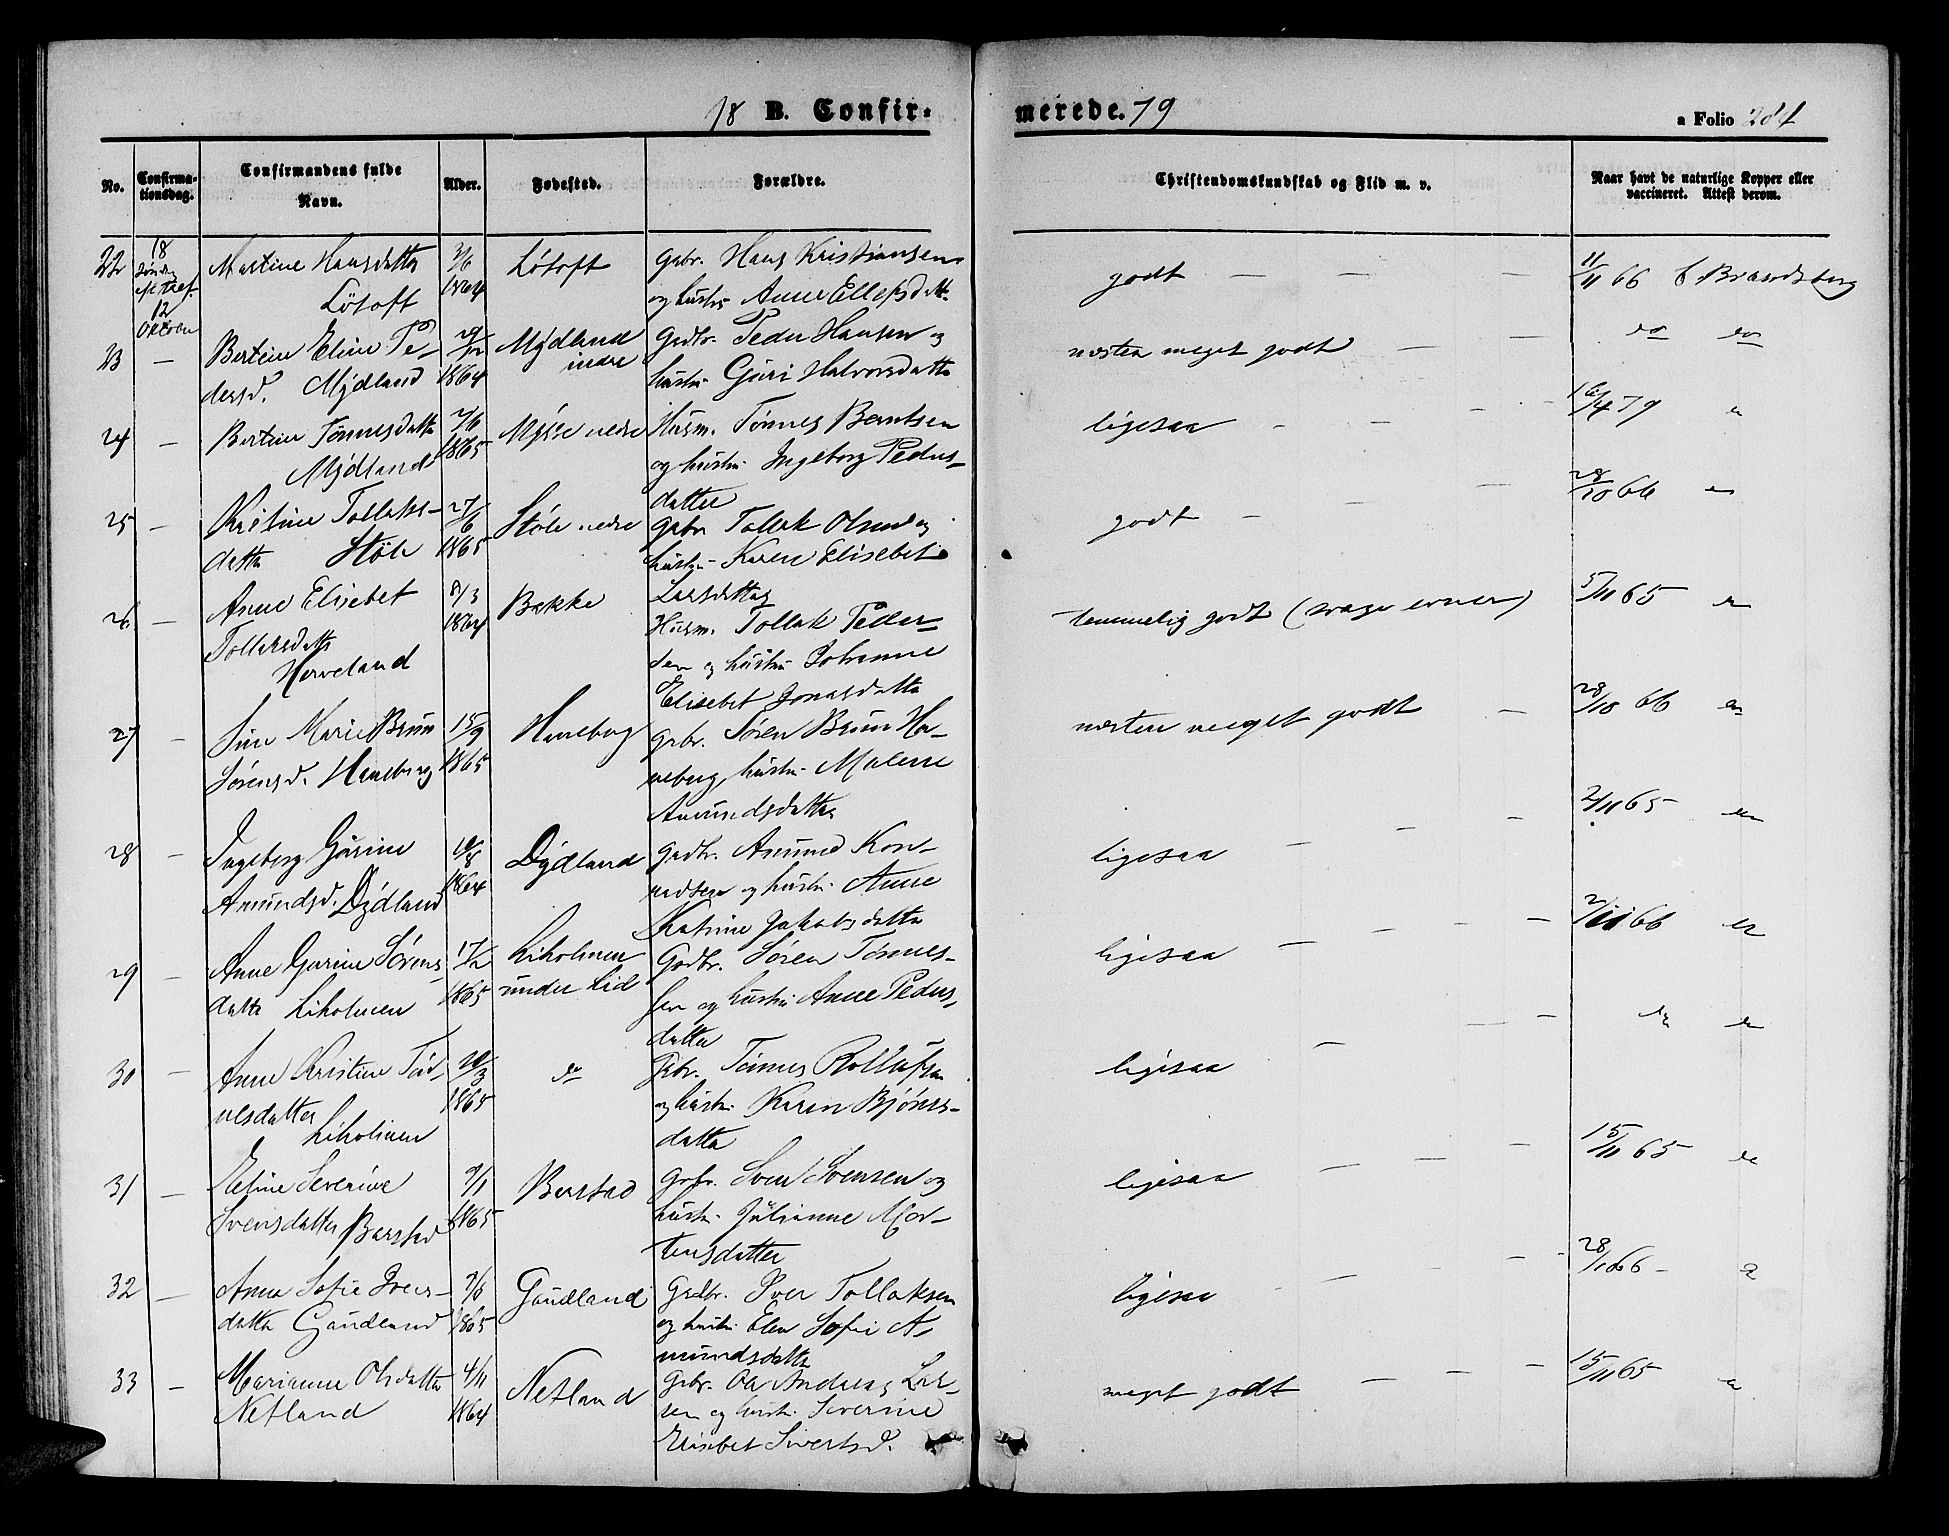 18 B. Confir-
merede. 79
a Folio 284
No.
Confirma-
tionsdag.
Confirmandens fulde
Navn.
Alder.
Fødested.
Forældre.
Christendomskundskab og Flid m. v.
Naar havt de naturlige Kopper eller
vaccineret. Attest derom.
22
18
12
Oktober
Martine Hansdatter
Løtoft
1864
Løtoft
Gbr. Hans Kristiansen
og hustr. Anne Ellefsdatt.
godt — — —
11/11 66 C Brandsberg
23 —
Bertine Eline Pe-
dersd. Mydland
29/12
1864
Mydland
indre
Gadbr. Peder Hansen og
hustr. Guri Halvorsdatter
næsten meget godt — —
do do
24 —
Bertine Tønnesdatter
Mydland
7/6
1865
Mysse nedre
Husm. Tønnes Berntsen
og hustr. Ingeborg Peders-
datter
ligesaa - — - -
16/4 79 do
25 —
Kristine Tollaks-
datter Støle
27/6
1865
Støle nedre
Gbr. Tollak Olsen og
hustr. Karen Elisebet
Larsdatter
godt — — —
28/10 66 do
26 —
Anne Elisebet
Tollaksdatter
Herveland
8/3
1864
Bakke
Husm. Tollak Peder-
sen og hustr. Johanne
Elisebet Jonasdatter
temmelig godt (svage evner)
5/11 65 do
27 —
Sine Marie Brun
Sørensd. Haneberg
15/9
1865
Haneberg
Gbr. Søren Brun Ha-
neberg, hustr. Malene
Amundsdatter
næsten meget godt —
28/10 66 do
28 —
Ingeborg Gurine
Amundsd. Dydland
10/8
1864
Dydland
Gadbr. Amund Kon-
radsen og hustr. Anne
Katrine Jakobsdatter
ligesaa — — —
2/11 65 do
29 —
Anne Gurine Sørens-
datter Liholmen
17/12
1865
Liholmen
under Lid
Gadbr. Søren Tønnes-
sen og hustr. Anne Peders-
datter
ligesaa — — — —
2/11 66 do
30 —
Anne Kristine Tøn-
nesdatter
Liholmen
20/3
1865
do
Gbr. Tønnes Rollufsen
og hustr. Karen Bjørns-
datter
ligesaa — — —
do do
31 —
Eline Severine
Svensdatter Barstad
9/1
1865
Barstad
Gbr. Sven Svensen og
hustr. Julianne Mor-
tensdatter
ligesaa — — —
15/11 65 do
32 —
Anna Sofie Ivers-
datter Gaudland
7/6
1865
Gaudland
Gadbr. Iver Tollaksen
og hustr. Elen Sofie A-
mundsdatter
ligesaa — — —
28/10 66 do
33 —
Marianne Olsdatter
Netland
4/11
1864
Netland
Gbr. Ole Andreas Lar-
sen og hustr. Severine
Elisebet Sivertsd.
meget godt — — —
15/11 65 do